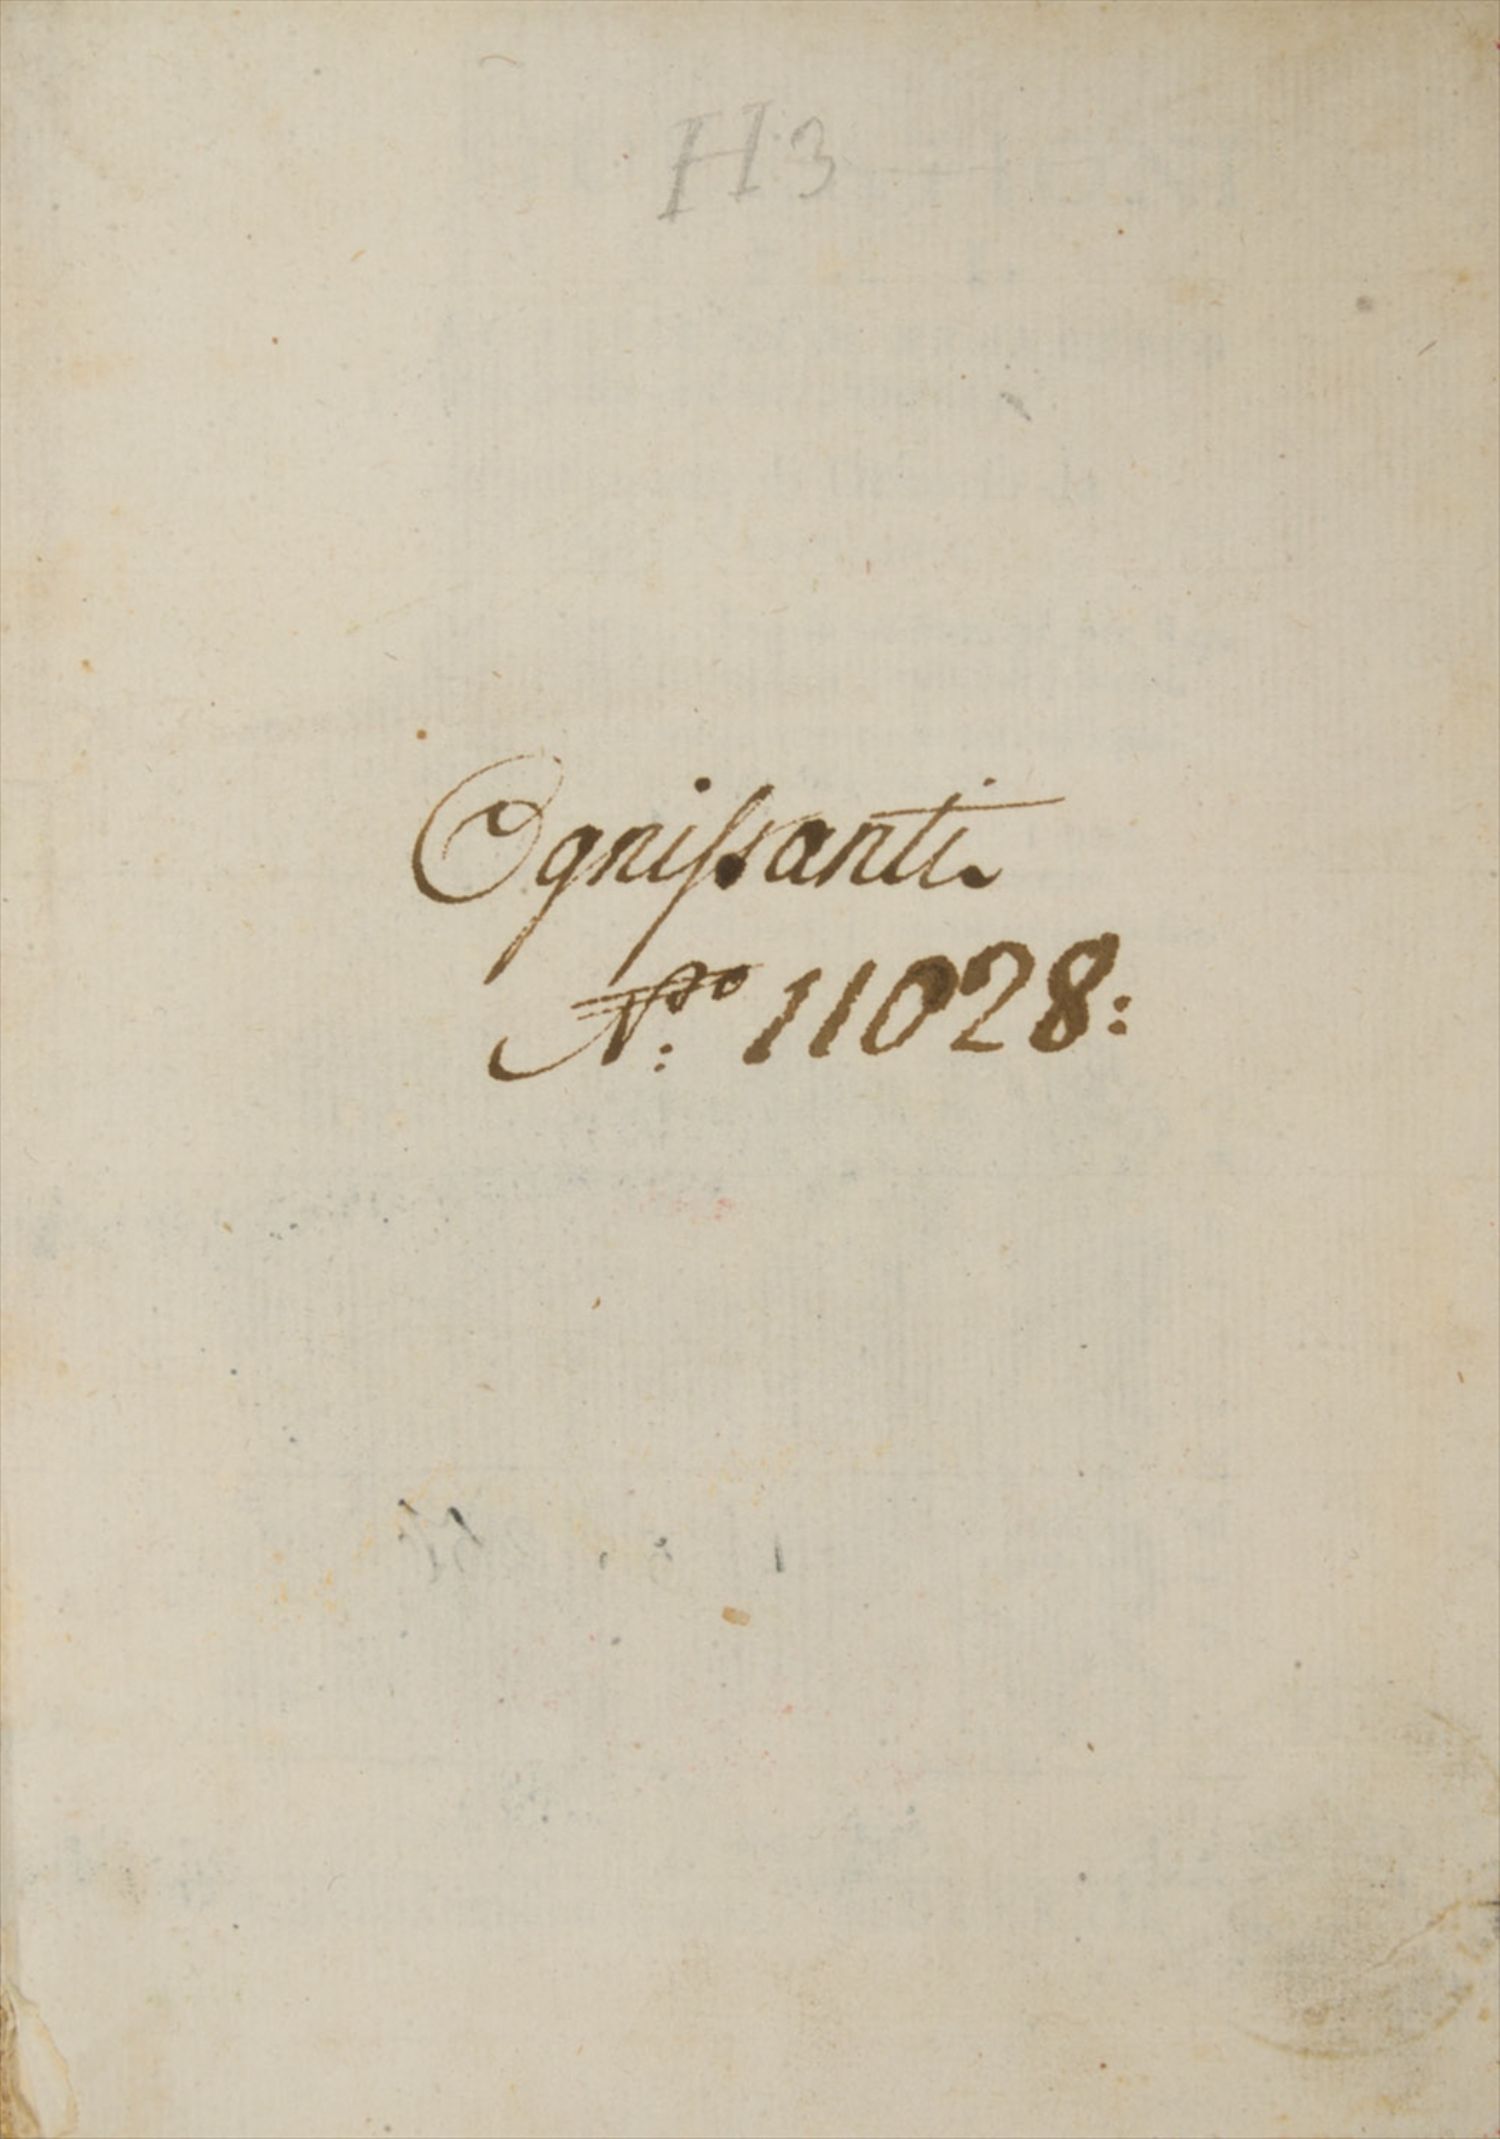 H3
Ognissanti.
No: 11028: